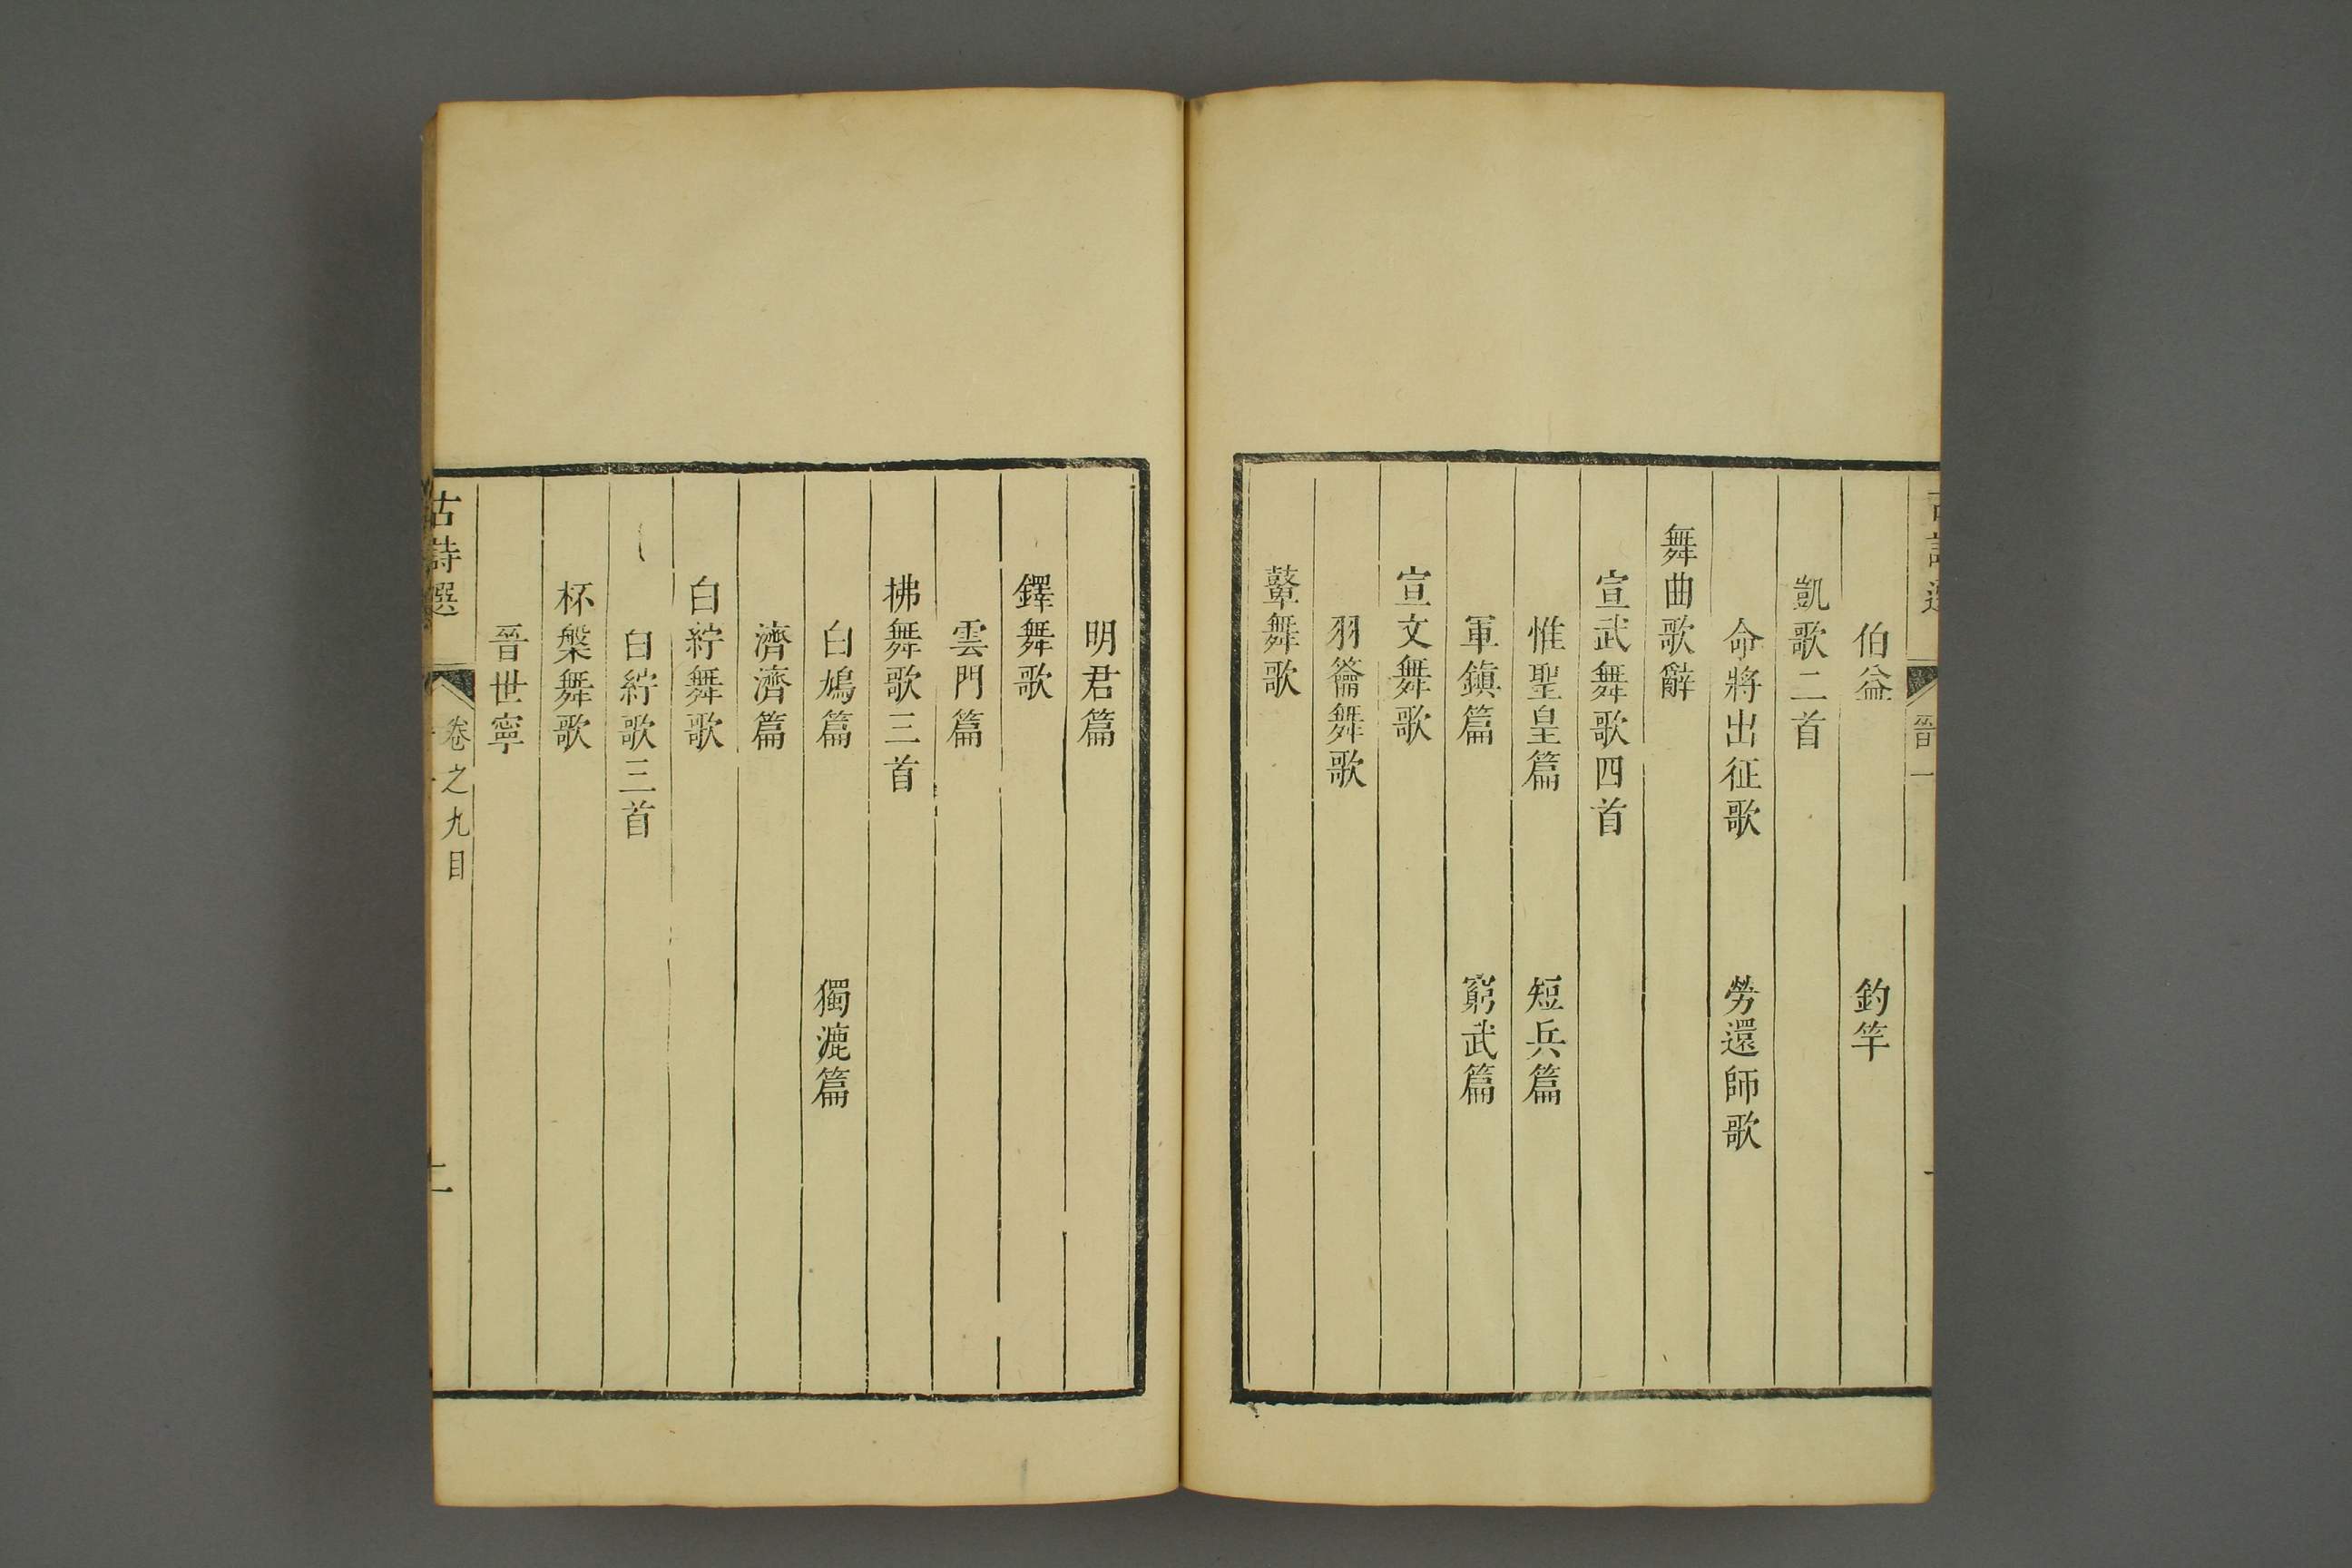 晉一
伯益　釣竿
凱歌二首
命將出征歌　勞還師歌
舞曲歌辭
宣武舞歌四首
惟聖皇篇　短兵篇
軍鎮篇　窮武篇
宣文舞歌
羽籥舞歌
鼙舞歌
明君篇
鐸舞歌
雲門篇
拂舞歌三首
白鳩篇　獨漉篇
濟濟篇
白紵舞歌
白紵歌三首
杯槃舞歌
晉世寧
古詩選　卷之九目